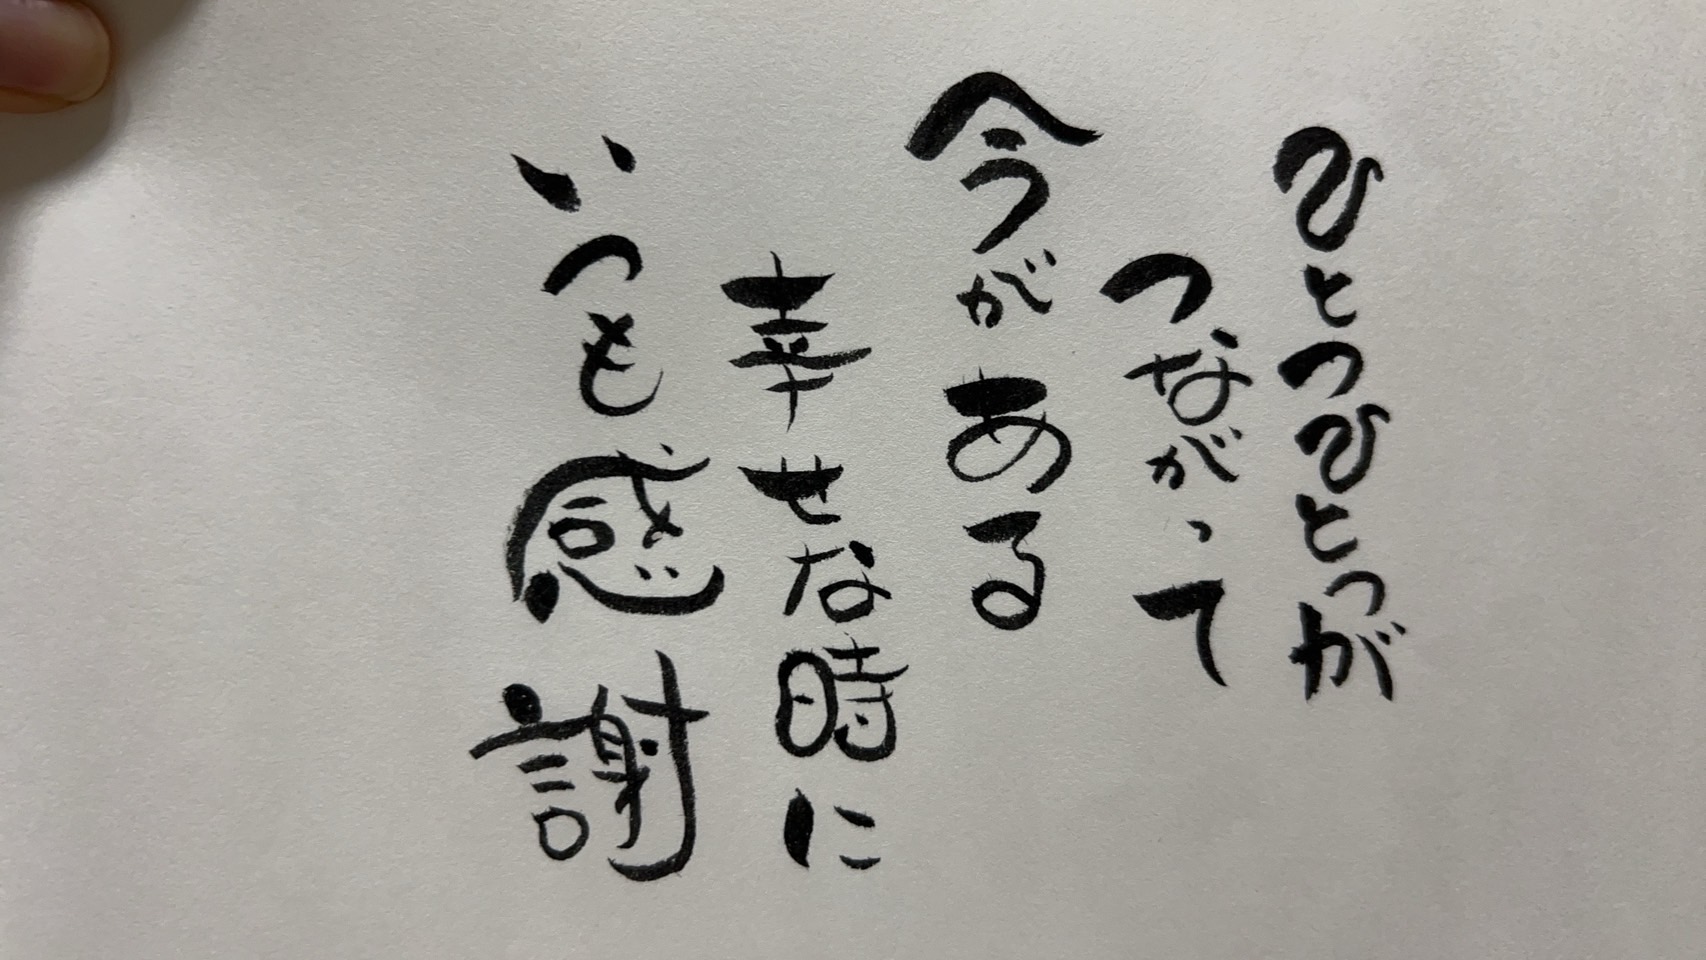 ひとつひとつが
つながって
今がある
幸せな時に
いつも感謝